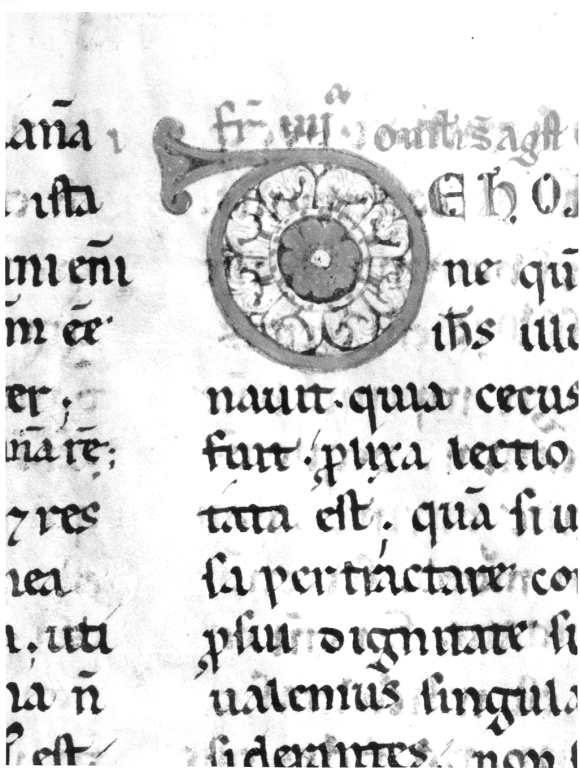 anā
ista
ani enī
m̄ ēe
er;
nā rē;
⁊ res
nea
a. uti
ia n̄
est
fr̄ iiijᵃ.
D E hO
ne qū
ih̄s illi
nauit. quia cecus
fuit. ꝓlixa lectio
tata est. quā si u
sa pertractare co
ꝓsui dignitate si
ualemus singula
siderantes. non